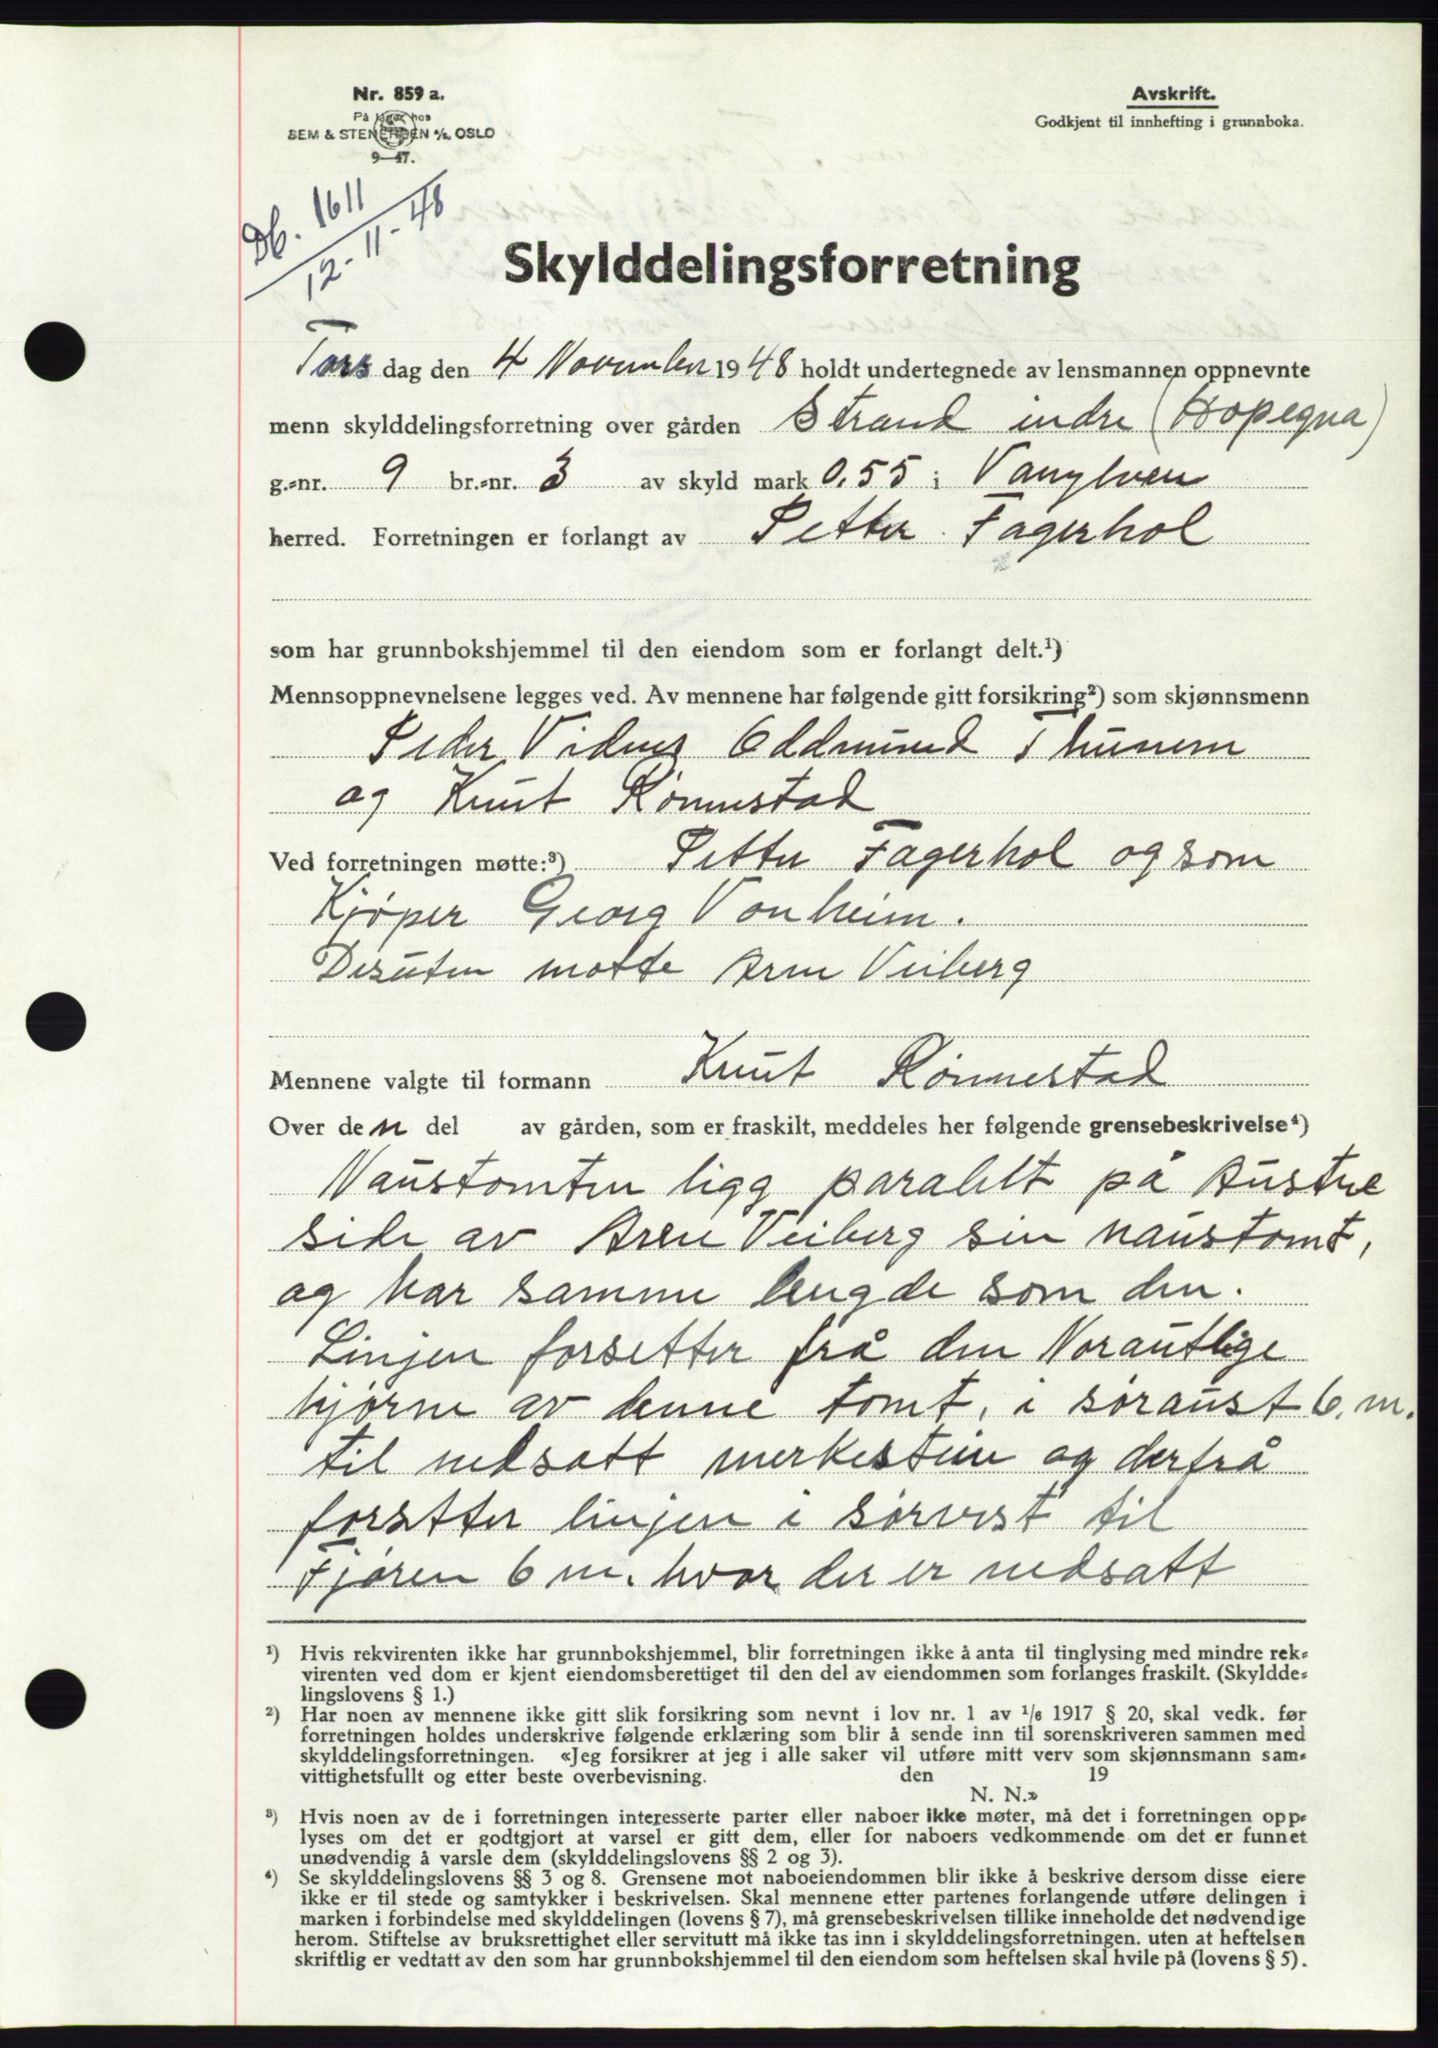 Nr. 859 a.
På lager hos
SEM & STENERSEN A/S OSLO
9—47.
Avskrift.
Godkjent til innhefting i grunnboka.
Db. 1611
12-11-48
Skylddelingsforretning
Tors dag den 4 November 1948 holdt undertegnede av lensmannen oppnevnte
menn skylddelingsforretning over gården Strand indre (Hopegna)
g.-nr. 9 br.-nr. 3 av skyld mark 0.55 i Vanylven
herred. Forretningen er forlangt av Petter Fagerhol
som har grunnbokshjemmel til den eiendom som er forlangt delt.¹)
Mennsoppnevnelsene legges ved. Av mennene har følgende gitt forsikring²) som skjønnsmenn
Peder Vidnes Oddmund Thunem
og Knut Rønnestad
Ved forretningen møtte:³) Petter Fagerhol og som
Kjøper Georg Vonheim.
Desuten møtte Arne Veiberg
Mennene valgte til formann Knut Rønnestad
Over den del av gården, som er fraskilt, meddeles her følgende grensebeskrivelse⁴)
Naustomten ligg paralelt på Austre
side av Arne Veiberg sin naustomt,
og har samme lengde som den.
Linjen forsetter frå den Norautlige
hjørne av denne tomt, i søraust 6. m.
til nedsatt merkestein og derfrå
forsetter linjen i sørvest til
Fjøren 6 m. hvor der er nedsatt
¹) Hvis rekvirenten ikke har grunnbokshjemmel, blir forretningen ikke å anta til tinglysing med mindre rek-
virenten ved dom er kjent eiendomsberettiget til den del av eiendommen som forlanges fraskilt. (Skyldde-
lingslovens § 1.)
²) Har noen av mennene ikke gitt slik forsikring som nevnt i lov nr. 1 av 1/6 1917 § 20, skal vedk. før
forretningen holdes underskrive følgende erklæring som blir å sende inn til sorenskriveren sammen med
skylddelingsforretningen. «Jeg forsikrer at jeg i alle saker vil utføre mitt verv som skjønnsmann sam-
vittighetsfullt og etter beste overbevisning. den 19
N. N.»
³) Hvis noen av de i forretningen interesserte parter eller naboer ikke møter, må det i forretningen opp-
lyses om det er godtgjort at varsel er gitt dem, eller for naboers vedkommende om det er funnet
unødvendig å varsle dem (skylddelingslovens §§ 2 og 3).
⁴) Se skylddelingslovens §§ 3 og 8. Grensene mot naboeiendommen blir ikke å beskrive dersom disse eiere
ikke er til stede og samtykker i beskrivelsen. Skal mennene etter partenes forlangende utføre delingen i
marken i forbindelse med skylddelingen (lovens § 7), må grensebeskrivelsen tillike inneholde det nødvendige
herom. Stiftelse av bruksrettighet eller servitutt må ikke tas inn i skylddelingsforretningen. uten at heftelsen
skriftlig er vedtatt av den som har grunnbokshjemmel til den eiendom som heftelsen skal hvile på (lovens § 5).